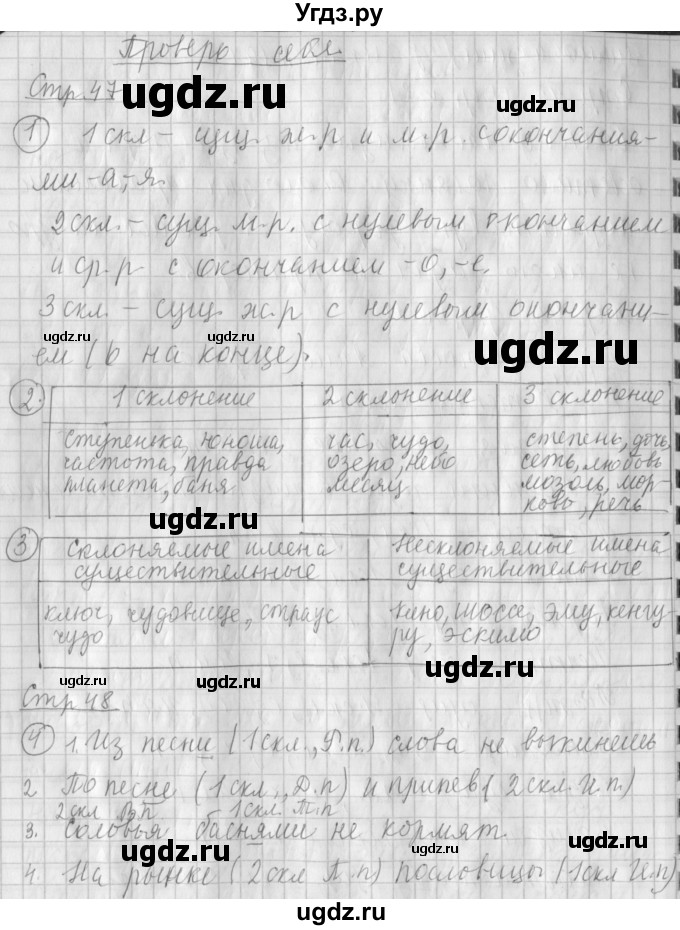 Угдз.ру
Проверь себя.
Стр. 47
ugdz.ru
ugdz.ru
1 1 скл – сущ. ж.р и м.р. с окончания-
ми -а, -я.
ugdz.ru
2 скл. – сущ. м.р. с нулевым окончанием
и ср.р с окончанием -о, -е.
3 скл. – сущ. ж.р с нулевым окончани-
ugdz.ru
ugdz.ru
ugdz.ru
ем (ь на конце).
2. 1 склонение 2 склонение 3 склонение
ступенька, юноша, час, чудо, степень, дочь,
частота, правда озеро, небо сеть, любовь
планета, баня месяц мозоль, мор-
ковь, речь
ugdz.ru
3 Склоняемые имена Несклоняемые имена
существительные существительные
ugdz.ru
ugdz.ru
ключ, чудовище, страус кино, шоссе, эму, кенгу-
чудо ру, эскимо
ugdz.ru
ugdz.ru
Стр 48
ugdz.ru
4 1. Из песни (1 скл., Р.п.) слова не выкинешь
2 По песне (1 скл., Д.п) и припев (2 скл. И.п.)
2 скл В.п 1 скл. Т.п
3. Соловья баснями не кормят.
ugdz.ru
ugdz.ru
4. На рынке (2 скл П.п) пословицы (1 скл И.п)
ugdz.ru
ugdz.ru